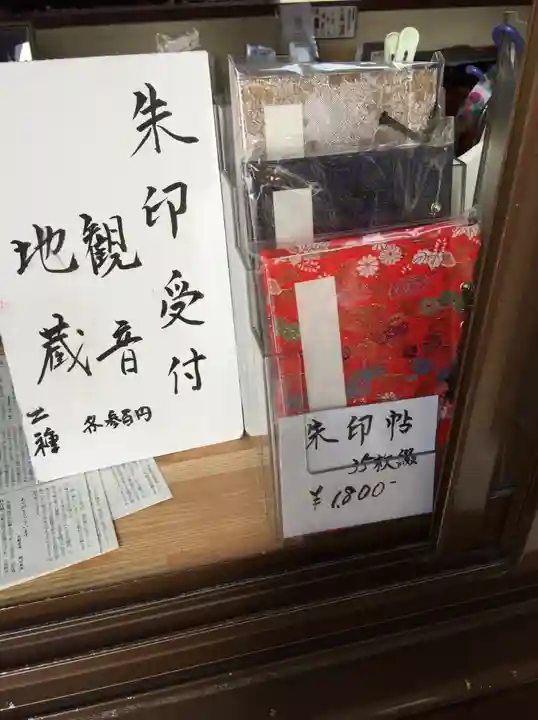 朱印受付
観音
地蔵
二種
各参百円
朱印帖
35枚綴
¥1,800-